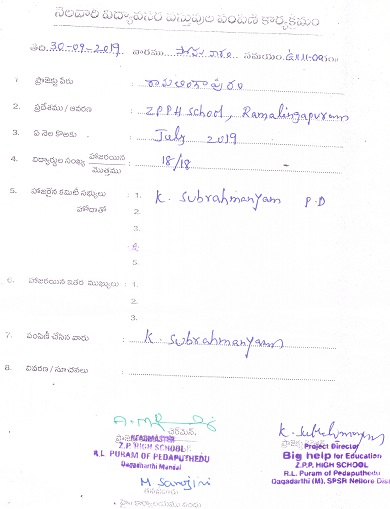 నెలవారి విద్యావసర వస్తువుల పంపిణి కార్యక్రమం
తేది: 30-09-2019 వారము సోమవారం సమయం:
1. ప్రాజెక్టు పేరు రామలింగాపురం
2. ప్రదేశము / ఆవరణ ZPPH School, Ramalingapuram
3. ఏ నెల కొరకు July 2019
4. విద్యార్థుల సంఖ్య హాజరయిన / మొత్తము 18/18
5. హాజరైన కమిటీ సభ్యులు : 1. K. Subrahmanyam P.D
హోదాతో 2.
3.
4.
5.
6. హాజరయిన ఇతర ముఖ్యులు : 1.
2.
3.
7. పంపిణీ చేసిన వారు : K. Subrahmanyam
8. వివరణ / సూచనలు :
ఛైర్మెన్,
HEADMASTER
Z.P HIGH SCHOOL
R.L PURAM OF PEDAPUTHEDU
Dagadarthi Mandal
M Sarojini
K. Subrahmanyam
Project Director
Big help for Education
Z.P.P. HIGH SCHOOL
R.L. Puram of Pedaputhedu
Dagadarthi (M), SPSR Nellore Dist